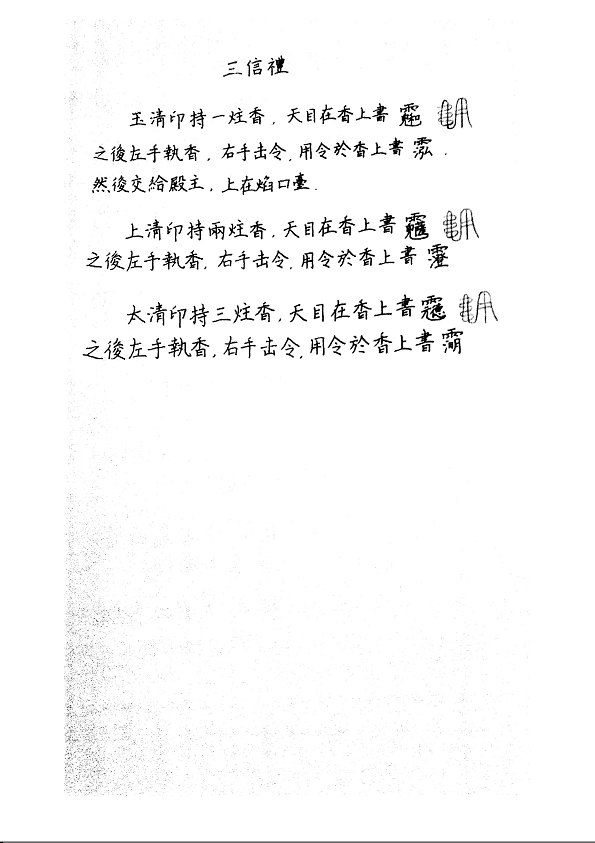 三信禮
玉清印持一炷香，天目在香上書
之後左手執香，右手击令，用令於香上書
然後交給殿主，上在焰口臺．
上清印持兩炷香，天目在香上書
之後左手執香，右手击令，用令於香上書
太清印持三炷香，天目在香上書
之後左手執香，右手击令，用令於香上書